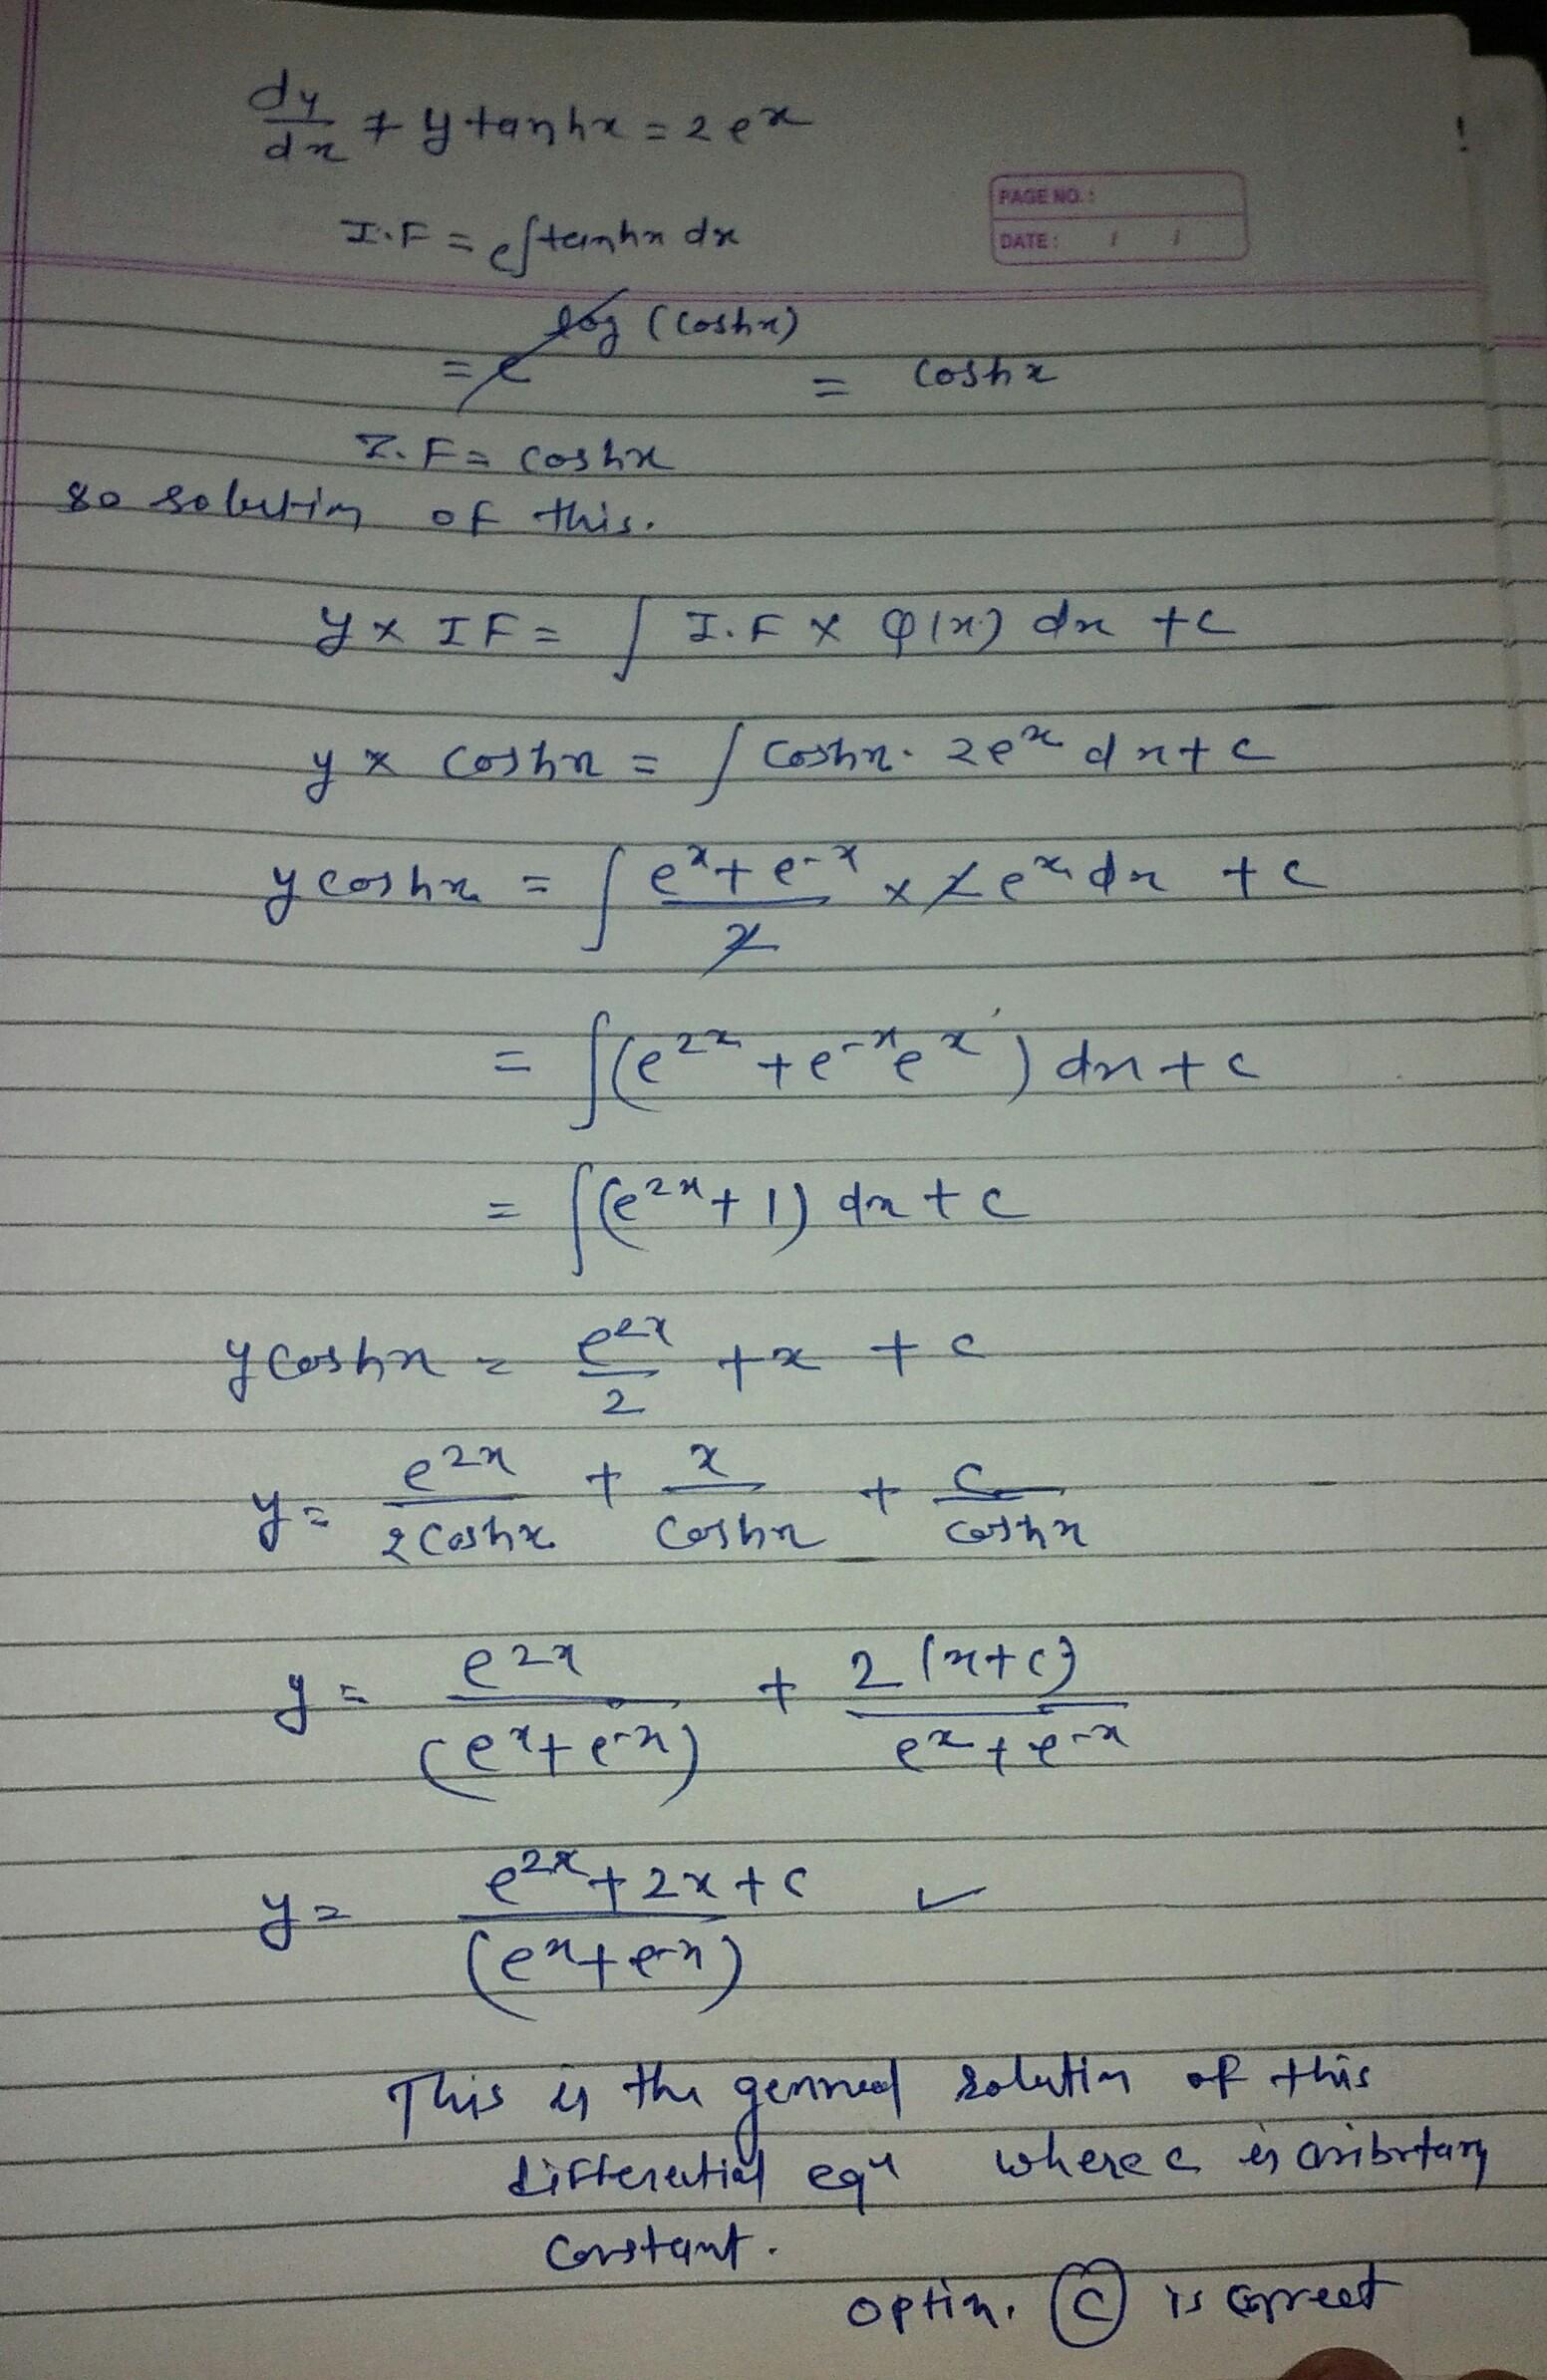 dy/dx + y tanhx = 2e^x
PAGE NO.:
DATE: / /
I.F = e^∫tanhx dx
= e^log (coshx) = coshx
I.F = coshx
so solution of this.
y x IF = ∫ I.F x Q(x) dx + c
y x coshx = ∫ coshx. 2e^x dx + c
y coshx = ∫ (e^x + e^-x)/2 x 2e^x dx + c
= ∫(e^2x + e^-x e^x) dx + c
= ∫(e^2x + 1) dx + c
y coshx = e^2x/2 + x + c
y = e^2x/2coshx + x/coshx + c/coshx
y = e^2x/(e^x + e^-x) + 2(x+c)/e^x + e^-x
y = e^2x + 2x + c/(e^x + e^-x) ✓
This is the genneral solution of this
differential eqn where c is aribrtary
constant.
option. (C) is correct